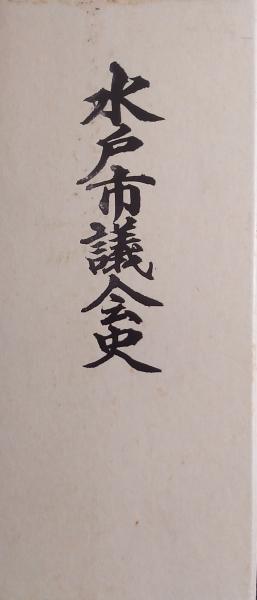 水戸市議会史